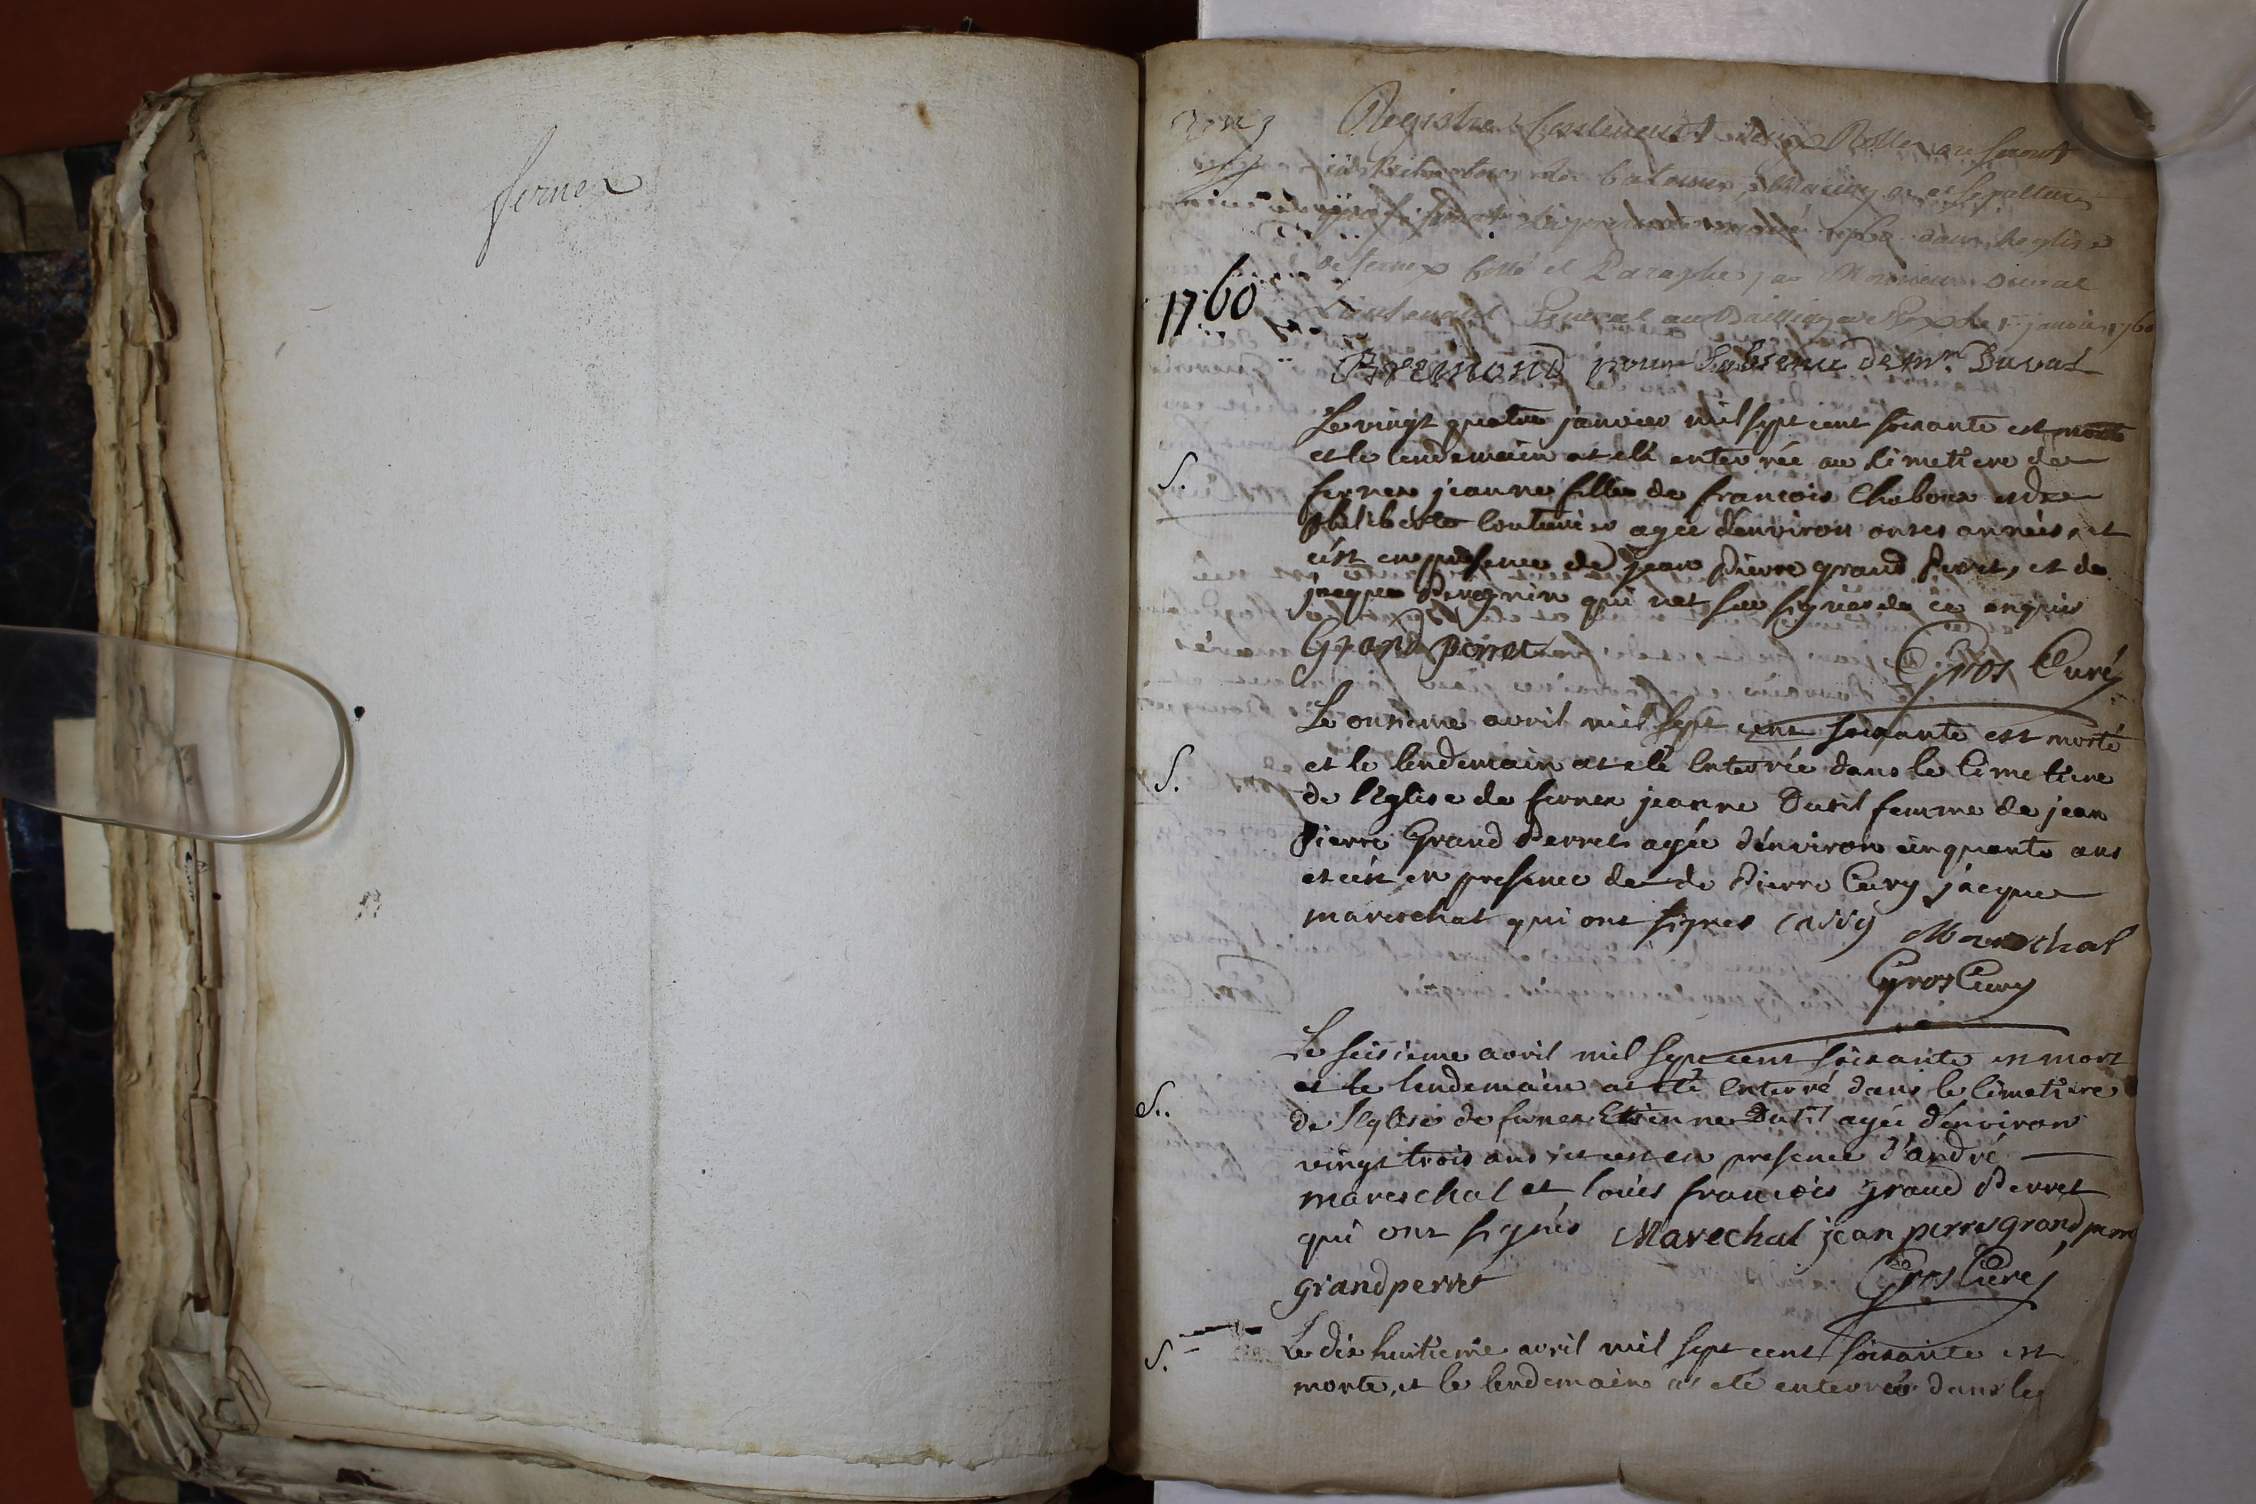 fernex
Registre Contenant deux Rolles ou seront
de batemes, Mariages et sepultures
dans leglise
de fernex Cotté et Paraphé par Monsieur Duval
Lieutenant General au Bailliage de Gex le 1er janvier 1760
1760
Bremond pour Labsence de Mr. Duval
Le vingt quatre janvier mil sept cent soixante est morte
et le lendemain at eté enterrée au Simetiere de
S.
fernex jeanne fille de francois Chaboux et de
philiberte agée d'environ onses années, et
c'est en presence de jean Pierre grand Perret, et de
jacque Peregrin qui nat sceu signer de ce enquis
Grand perret
Gros Curé
Le onsieme avril mil sept cent soixante est morte
et le lendemain at eté enterrée dans le Cimetiere
S.
de l'Eglise de fernex jeanne Dutil femme de jean
Pierre Grand Perret agée d'environ cinquante ans
et c'est en presence de de Pierre Cury jacque
mareschal qui ont signes Cury
Mareschal
Gros Cury
Le seisieme avril mil sept cent soixante est mort
et le lendemain at eté enterré dans le Cimetiere
S.
de l'Eglise de fernex Etienne Dutil agée d'environ
vingt trois ans, et c'est en presence d'andré
mareschal et louis francois grand Perret
qui ont signés Marechal jean perre grand perret
grandperret
Gros Curé
S.
Le dix huitieme avril mil sept cent soixante est
morte, et le lendemain at eté enterrée dans le